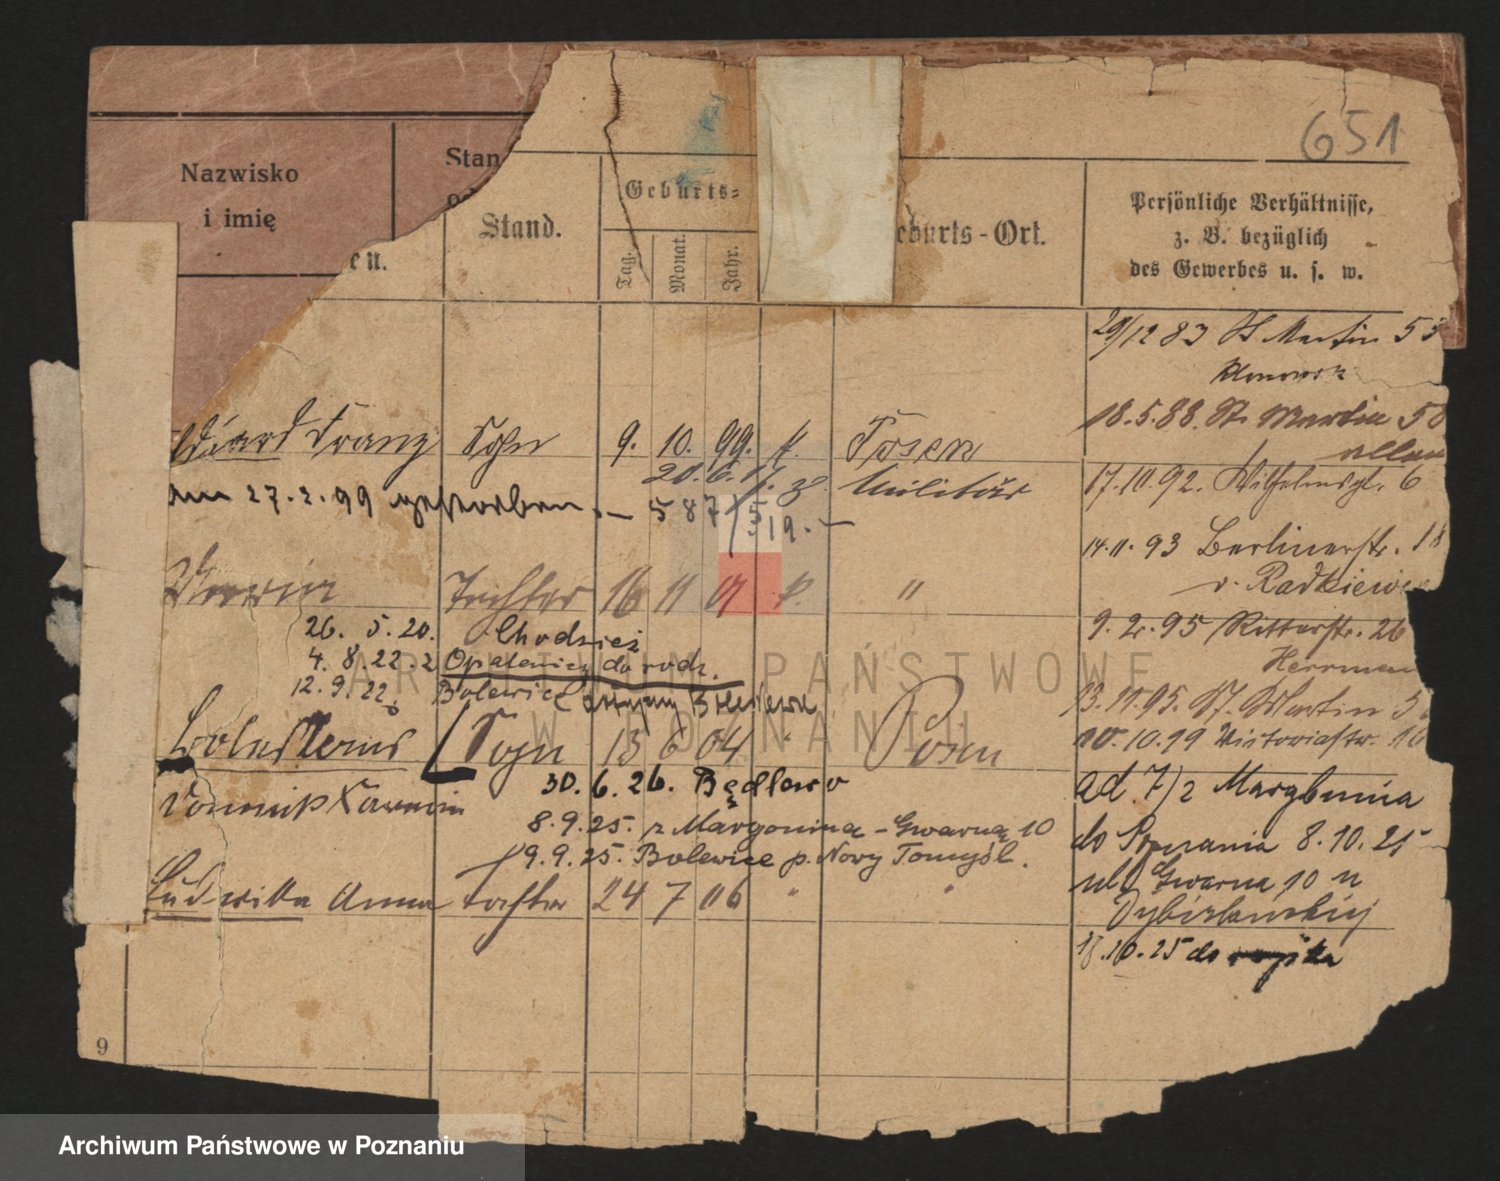 651
Nazwisko
i imię
Stan
en.
Stand.
Geburts=
Tag.
Monat.
Jahr.
eburts-Ort.
Persönliche Verhältnisse,
z. B. bezüglich
des Gewerbes u. s. w.
29/12 83 St Martin 53
18.5.88. St. Martin 50
allein
17.10.92. Wilhelmspl. 6
14.11.93 Berlinerstr. 18
v. Radkiewi
9.2.95 Ritterstr. 26
Herrmann
13.11.95. St. Martin 3
10.10.19 Victoriastr. 10
ad 7/2 Margonina
do Poznania 8.10.25
ul Gwarna 10 u
18.10.25 do
Franz Sohn 9. 10. 99. k. Posen
20.6.17. z. Militär
am 27.2.99 gestorben. — 587/519.—
Maria Tochter 16 11 k. "
26. 5. 20. Chodzież
4. 8. 22. z Opalenicy do rodz.
12. 9. 22 Bolewice
Boleslaus Sohn 13 6 04 " Posen
30. 6. 26. Będlewo
8.9.25. z Margonina - Gwarna 10
19.9.25. Bolewice p. Nowy Tomyśl.
Ludwika Anna Tochter 24 7 06 " "
9
ARCHIWUM PAŃSTWOWE
W POZNANIU
Archiwum Państwowe w Poznaniu